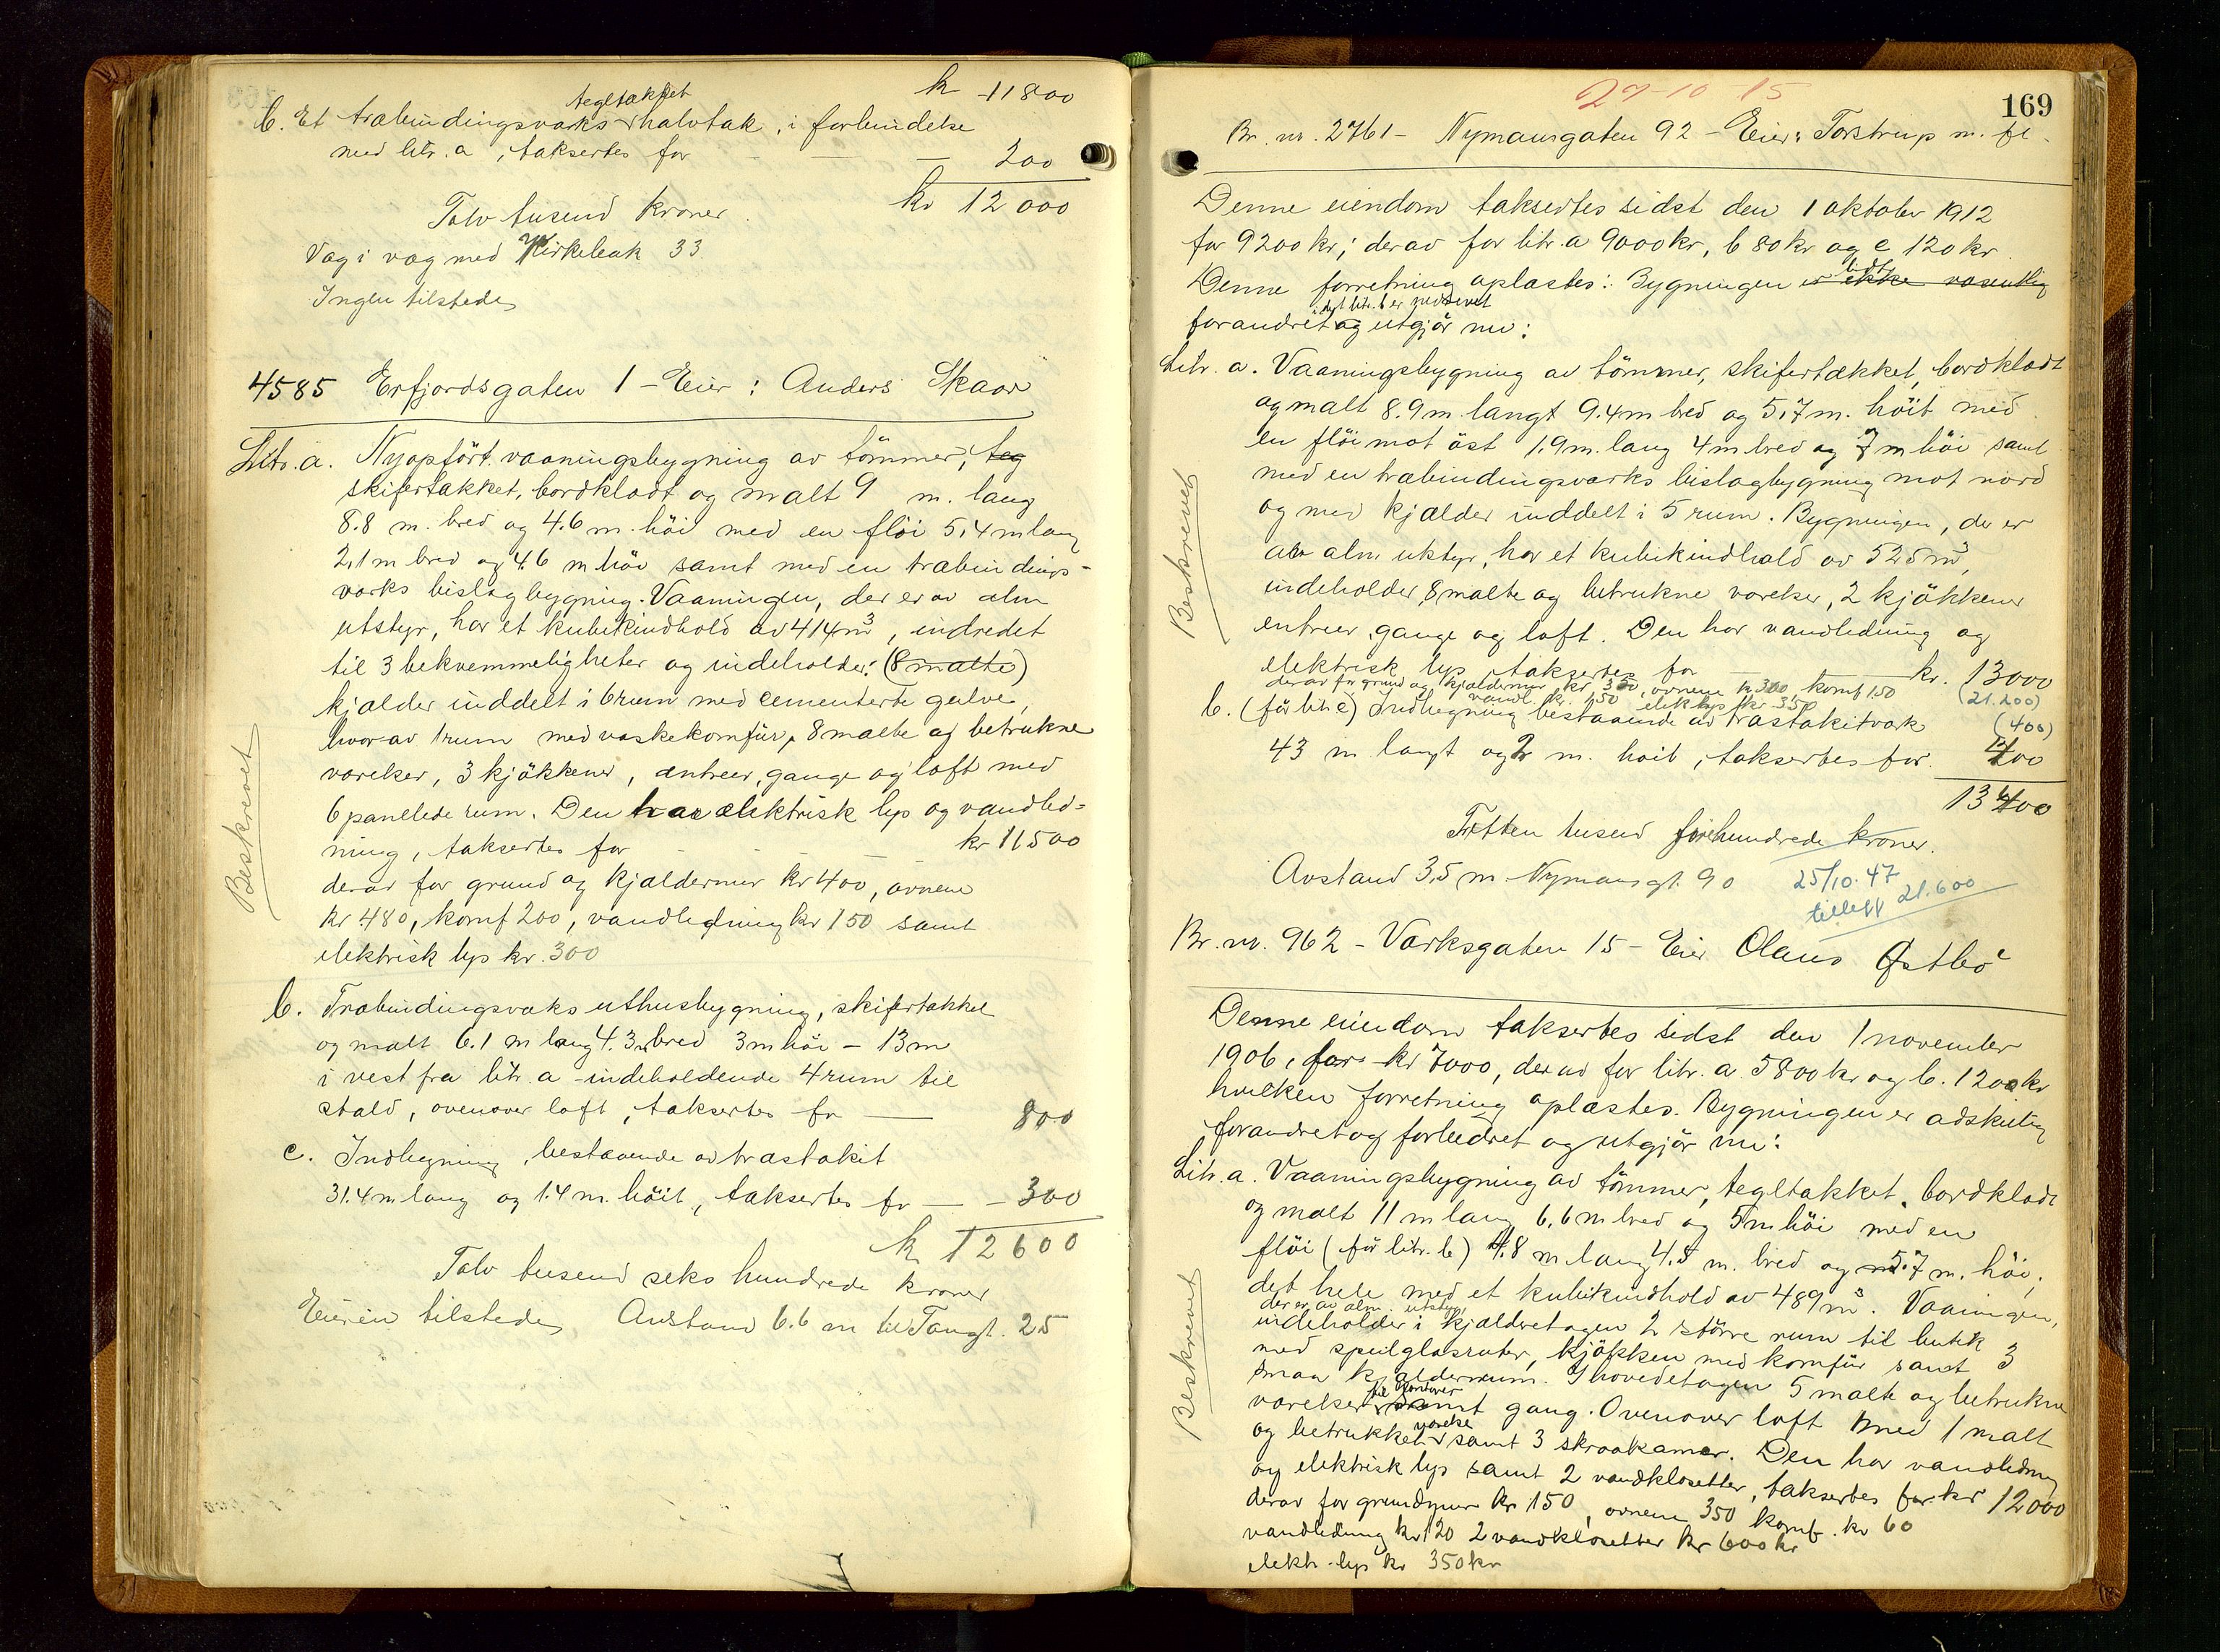 kr 11800
tegltækket
b. Et træbindingsværks halvtak, i forbindelse
med litr. a, taksertes for — — 200
kr 12000
Tolv tusend kroner.
Væg i væg med Kirkebak 33.
Ingen tilstede
4585 Erfjordsgaten 1 - Eier: Anders Skaar
Litr. a. Nyopført vaaningsbygning av tømmer, teg
skifertækket, bordklædt og malt 9 m. lang
8.8 m. bred og 4.6 m. höi med en flöi 5,4 m lang
2,1 m bred og 4.6 m höi samt med en træbindings-
værks bislagbygning. Vaaningen, der er av alm
utstyr, har et kubikindhold av 414 m³, indredet
til 3 bekvemmeligheter og indeholder: (8 malte)
kjælder inddelt i 6 rum med cementerte gulve,
hvorav 1 rum med vaskekomfür, 8 malte og betrukne
værelser, 3 kjökkener, entreer, gange og loft med
6 panelede rum. Den har elektrisk lys og vandled=
ning, taksertes for — — kr 11500
derav for grund og kjældermur kr 400, ovnene
kr. 480, komf 200, vandledning kr 150 samt
elektrisk lys kr. 300
Beskrevet
b. Træbindingsværks uthusbygning, skifertækket
og malt 6.1 m lang 4.3 m bred 3 m höi - 13 m
i vest fra litr. a - indeholdende 4 rum til
stald, ovenover loft, taksertes for — 800
c. Indhegning, bestaaende av træstakit
31.4 m lang og 1.4 m. höit, taksertes for — - 300
kr 12600
Tolv tusend seks hundrede kroner
Eieren tilstede, Avstand 6.6 m til Tangt. 25
27-10 15
169
Br. nr. 2761 - Nymansgaten 92 - Eier: Torstrup m. fl.
Denne eiendom taksertes sidst den 1 oktober 1912
for 9200 kr; derav for litr. a 9000 kr, b 80 kr og c 120 kr.
Denne forretning oplæstes: Bygningen er ikke væsentlig
lidt
i det litr. b er nedrevet
forandret og utgjör nu:
Litr. a. Vaaningsbygning av tömmer, skifertækket, bordklædt
og malt 8.9 m. langt 9.4 m bred og 5,7 m. höit med
en flöi mot öst 1.9 m. lang 4 m bred og 7 m höi samt
med en træbindingsværks bislagbygning mot nord
og med kjælder inddelt i 5 rum. Bygningen, der er
av alm utstyr, har et kubikindhold av 525 m³,
indeholder 8 malte og betrukne værelser, 2 kjökkener
entreer, gange og loft. Den har vandledning og
elektrisk lys, taksertes for — — kr. 13000
derav for grund og kjældermur kr 350, ovnene kr 300, komf 150
(21.200)
vandl. kr. 150 elek lys kr 350
b. (för litr c) Indhegning bestaaende av træstakitværk (400)
43 m langt og 2 m. höit, taksertes for 400
13400
Tretten tusend firehundrede kroner.
Avstand 3,5 m Nymansgt. 90
25/10.47
tillegg 21.600
Beskrevet
Br. nr. 962 - Værksgaten 15 - Eier Olaus Østbö
Denne eiendom taksertes sidst den 1 november
1906, for kr 7000, derav for litr. a. 5800 kr og b. 1200 kr
hvilken forretning oplæstes. Bygningen er adskillig
forandret og forbedret og utgjör nu:
Litr. a. Vaaningsbygning av tömmer, tegltækket, bordklædt
og malt 11 m lang, 6,6 m bred og 5 m höi med en
flöi (för litr. b) 4.8 m lang 4.5 m. bred og 5.7 m. höi;
det hele med et kubikindhold av 489 m³. Vaaningen,
der er av alm. utstyr,
indeholder i kjælderetagen 2 större rum til butik
med speilglasruter, kjökken med komfür samt 3
smaa kjælderrum. I hovedetagen 5 malte og betrukne
til kontorer
værelser samt gang. Ovenover loft med 1 malt
værelse
og betrukket samt 3 skraakamer. Den har vandledning
og elektrisk lys samt 2 vandklosetter, taksertes for kr 12000
derav for grundmur kr 150, ovnene 350 komf. kr 60
vandledning kr 120 2 vandklosetter kr 600 kr
elektr. lys kr 350 kr
Beskrevet